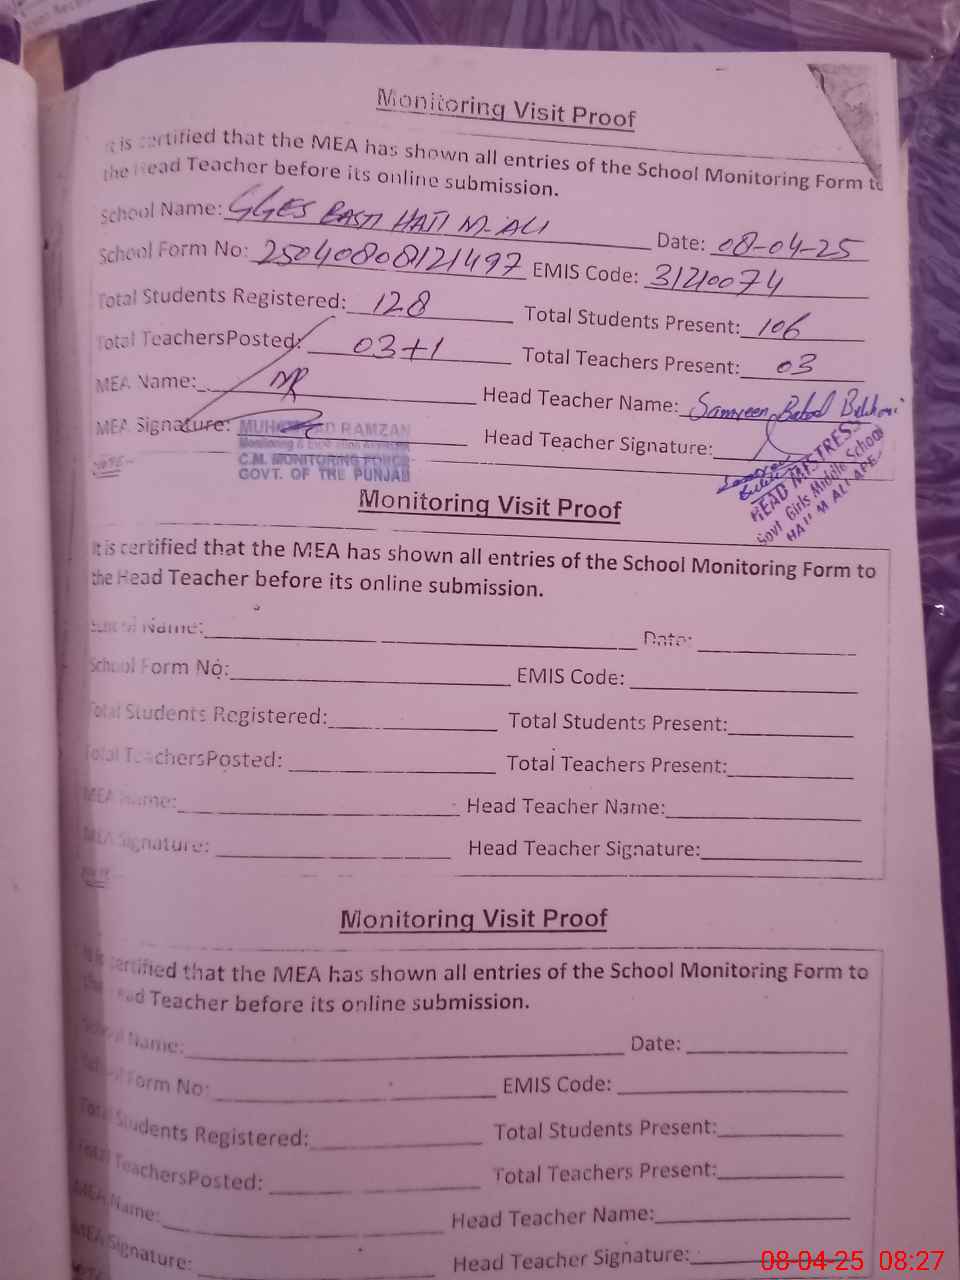 Monitoring Visit Proof
It is certified that the MEA has shown all entries of the School Monitoring Form to
the Head Teacher before its online submission.
School Name: GGES BASTI HAJI M. ALI Date: 08-04-25
School Form No: 25040808121497 EMIS Code: 31210074
Total Students Registered: 128 Total Students Present: 106
Total TeachersPosted: 03+1 Total Teachers Present: 03
MEA Name: MR Head Teacher Name: Samreen Batool
MEA Signature: MUHAMMAD RAMZAN Head Teacher Signature:
Monitoring & Evaluation Assistant
C.M. MONITORING FORCE
GOVT. OF THE PUNJAB
HEAD MISTRESS
Govt Girls Middle School
Monitoring Visit Proof
It is certified that the MEA has shown all entries of the School Monitoring Form to
the Head Teacher before its online submission.
School Name: Date:
School Form No: EMIS Code:
Total Students Registered: Total Students Present:
Total TeachersPosted: Total Teachers Present:
MEA Name: Head Teacher Name:
MEA Signature: Head Teacher Signature:
Monitoring Visit Proof
It is certified that the MEA has shown all entries of the School Monitoring Form to
the Head Teacher before its online submission.
School Name: Date:
School Form No: EMIS Code:
Total Students Registered: Total Students Present:
Total TeachersPosted: Total Teachers Present:
MEA Name: Head Teacher Name:
MEA Signature: Head Teacher Signature:
08-04-25 08:27